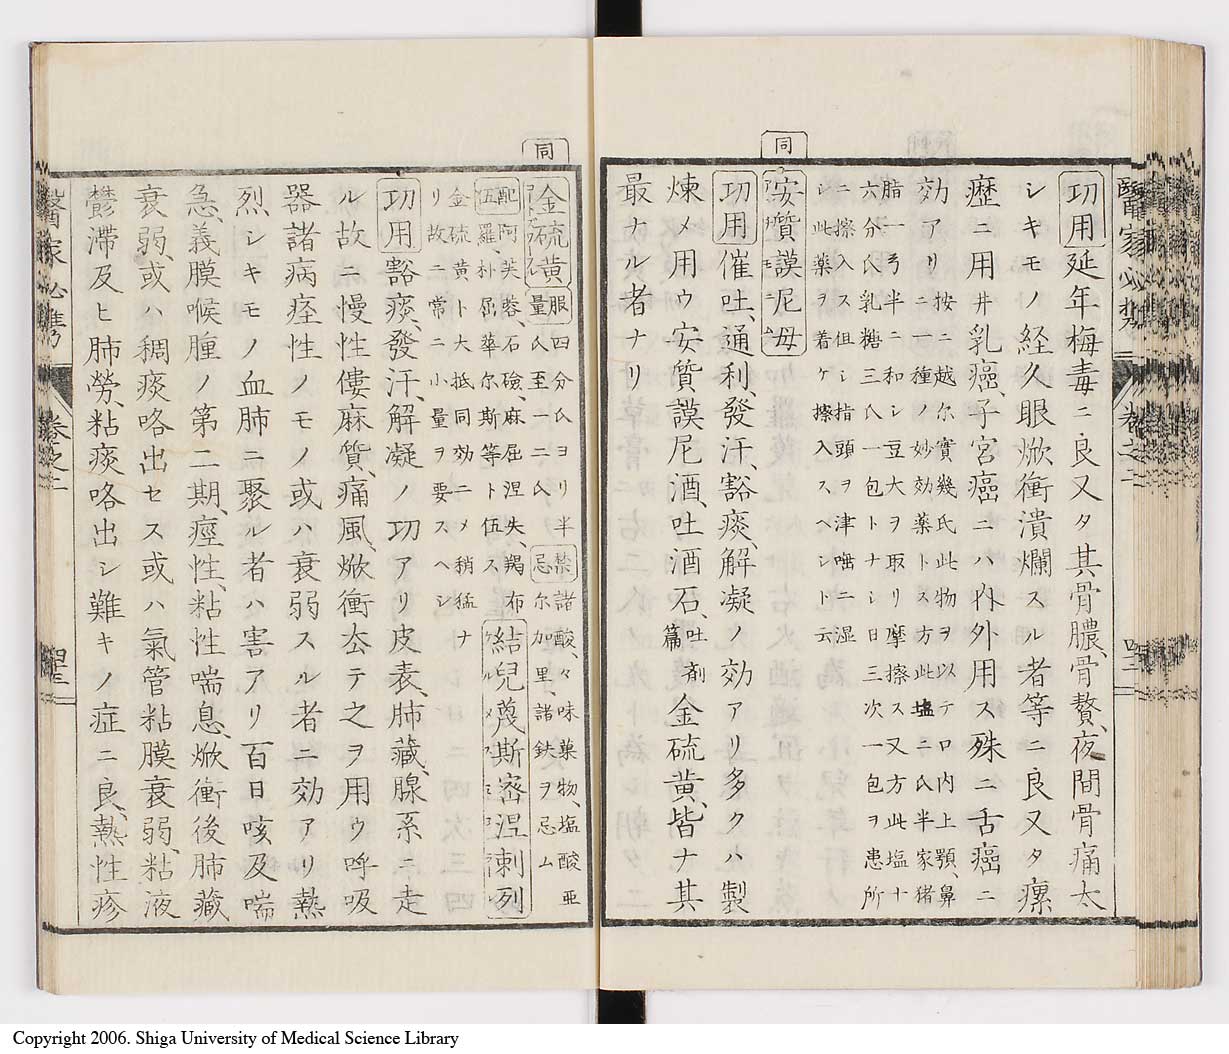 同
功用延年梅毒ニ良又タ其骨膿、骨贅、夜間骨痛太
シキモノ経久眼焮衝潰爛スル者等ニ良又タ瘰
癧ニ用井乳癌、子宮癌ニハ内外用ス殊ニ舌癌ニ
効アリ按ニ越尔實幾氏此物ヲ以テ口内上顎、鼻
ニ一種ノ妙効薬トス方此塩二氏半家猪
脂一弓半ニ和シ豆大ヲ取リ摩擦ス又方此塩十
六分氏乳糖三氏一包トナシ日三次一包ヲ患所
ニ擦入ス但シ指頭ヲ津唾ニ湿
シ此薬ヲ着ケ擦入スヘシト云
安質謨尼母
功用催吐、通利、發汗、豁痰、解凝ノ効アリ多クハ製
煉メ用ウ安質謨尼酒、吐酒石、吐剤篇金硫黄、皆ナ其
最ナル者ナリ
同
金硫黄 服量 四分氏ヨリ半氏至一二氏 禁忌 諸酸、々味菓物、塩酸亜尔加里、諸鉄ヲ忌ム
配伍 阿芙蓉、石鹸、麻屈涅失、羯布羅、朴屈華尔斯等ト伍ス 結児蔑斯密涅刺列
金硫黄ト大抵同効ニメ稍猛ナ
リ故ニ常ニ小量ヲ要スヘシ
功用豁痰、發汗、解凝ノ功アリ皮表、肺藏、腺系ニ走
ル故ニ慢性僂麻質、痛風、焮衝去テ之ヲ用ウ呼吸
器諸病痙性ノモノ或ハ衰弱スル者ニ効アリ熱
烈シキモノ血肺ニ聚ル者ハ害アリ百日咳及喘
急、義膜喉腫ノ第二期、痙性、粘性喘息、焮衝後肺藏
衰弱、或ハ稠痰咯出セス或ハ氣管粘膜衰弱、粘液
欝滯及ヒ肺勞、粘痰咯出シ難キノ症ニ良、熱性疹
醫家必携
巻之二
Copyright 2006. Shiga University of Medical Science Library